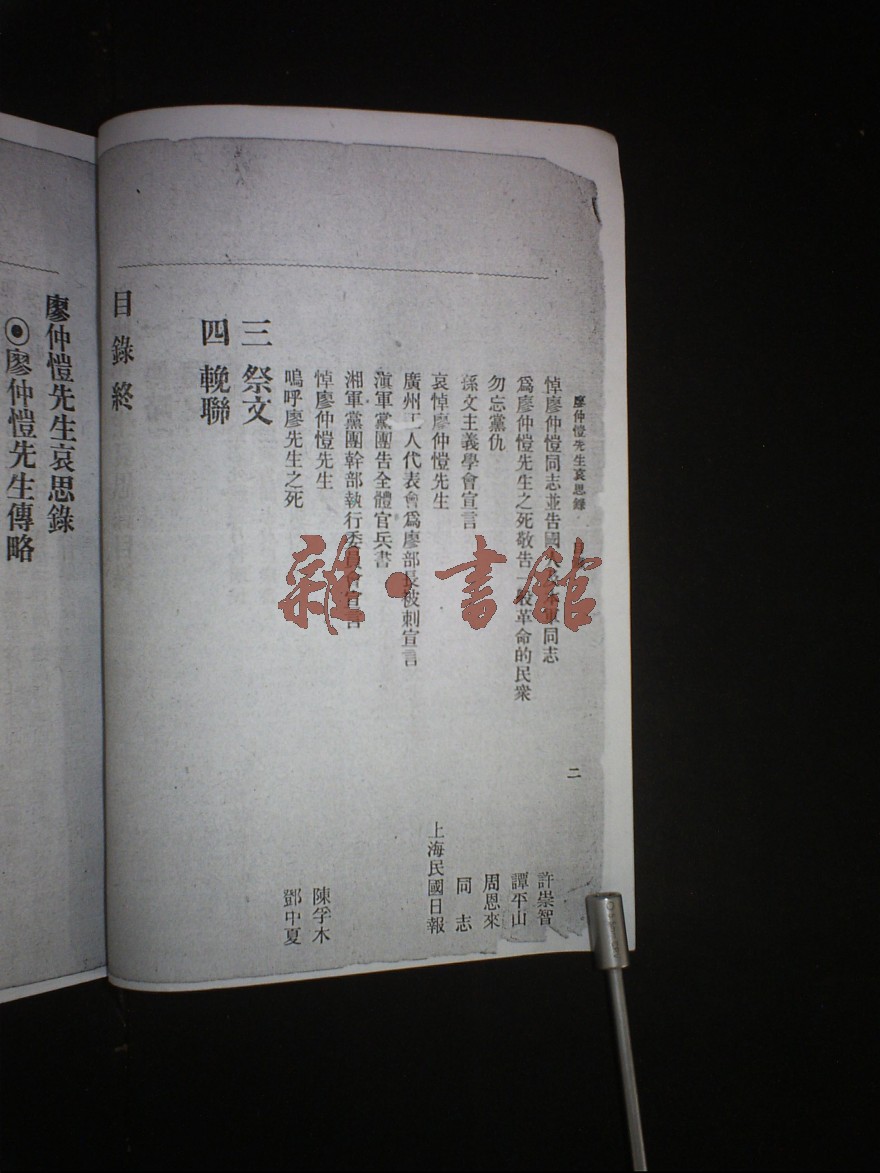 廖仲愷先生哀思錄
二
悼廖仲愷同志並告國 同志 許崇智
爲廖仲愷先生之死敬告一般革命的民衆 譚平山
勿忘黨仇 周恩來
孫文主義學會宣言 同志
哀悼廖仲愷先生 上海民國日報
廣州工人代表會爲廖部長被刺宣言
滇軍黨團告全體官兵書
湘軍黨團幹部執行委員會宣言
悼廖仲愷先生 陳孚木
嗚呼廖先生之死 鄧中夏
三 祭文
四 輓聯
目錄終
廖仲愷先生哀思錄
◉廖仲愷先生傳略
雜·書館